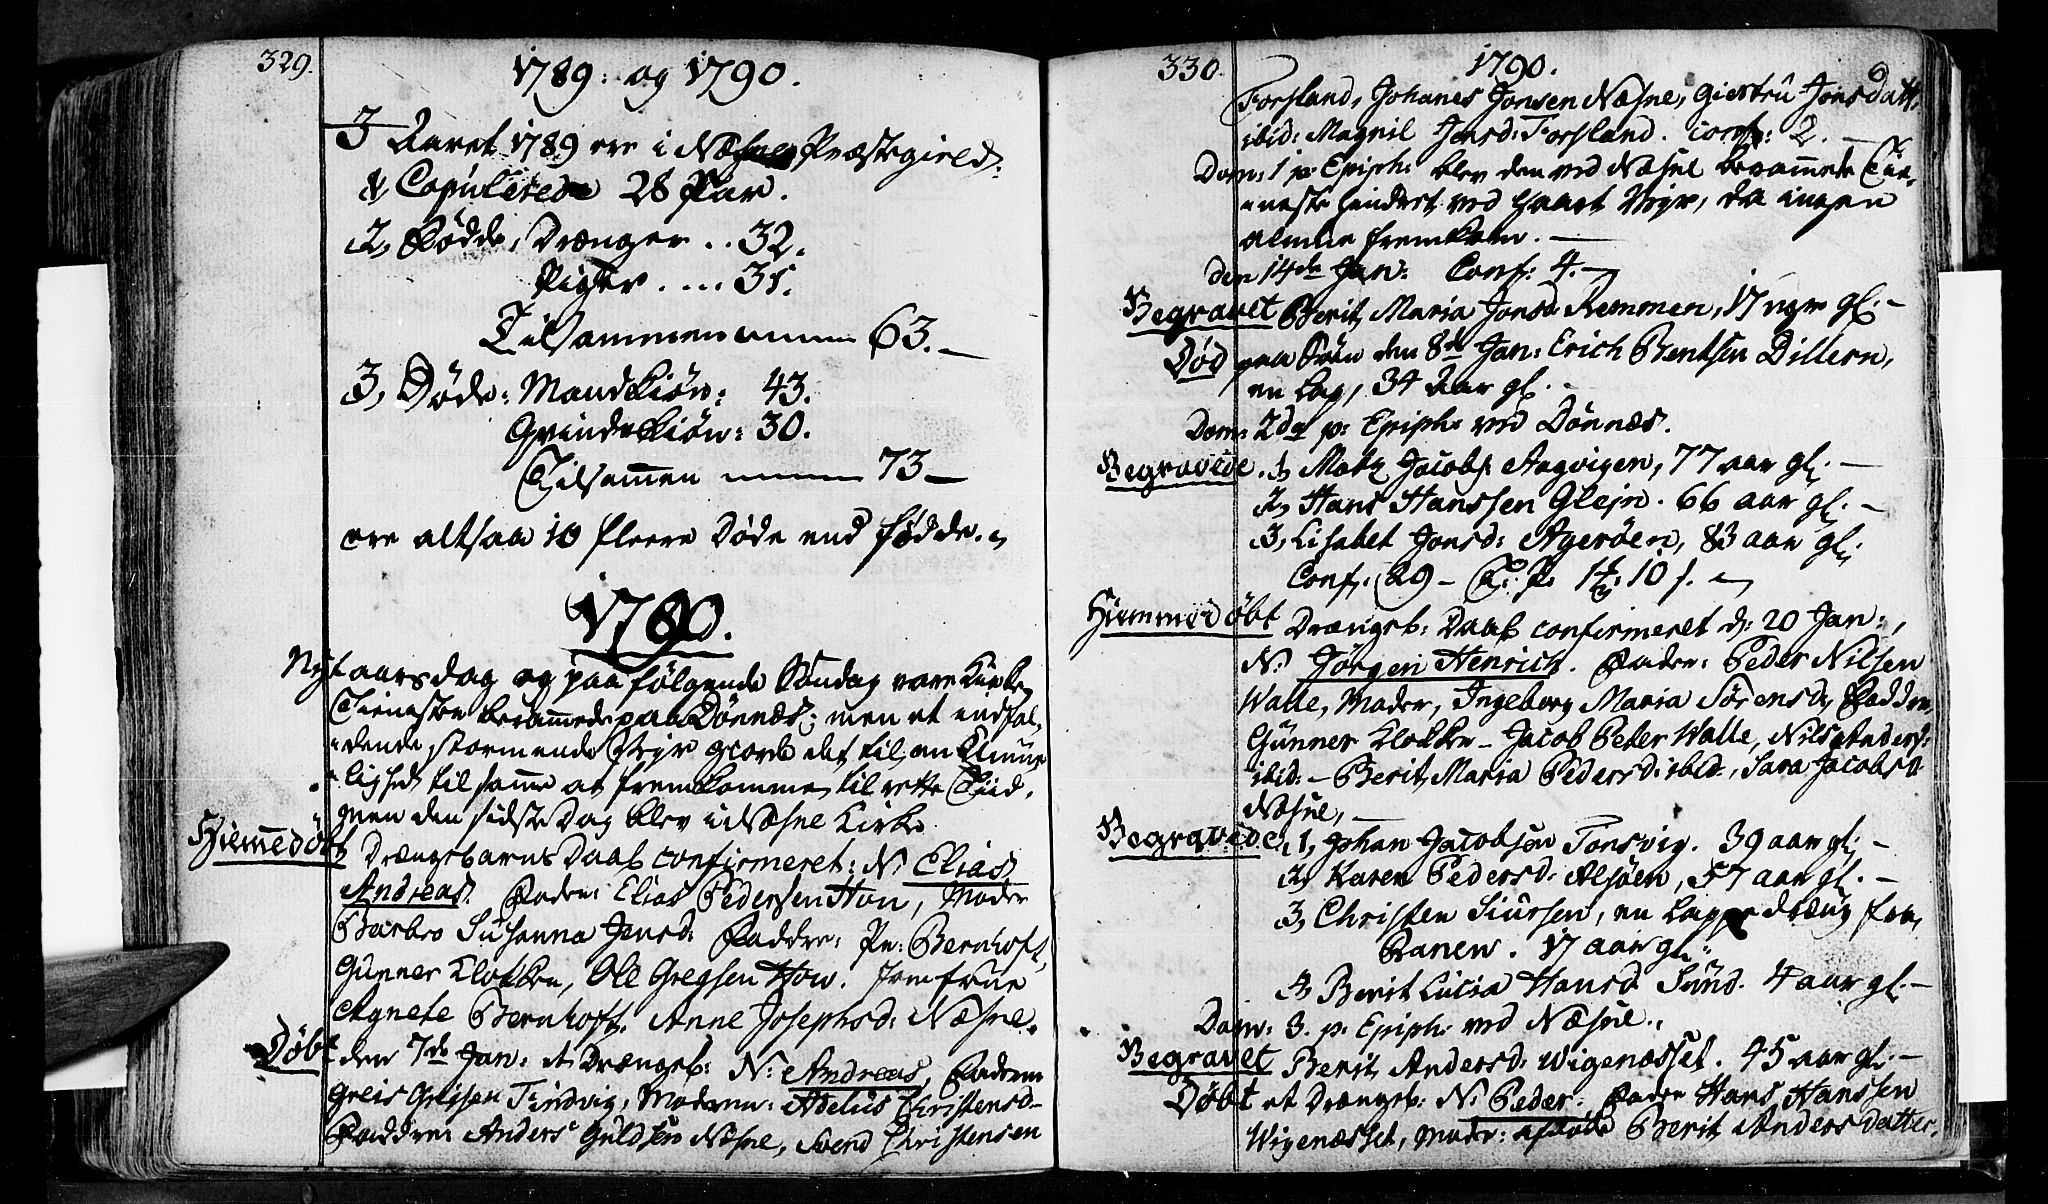 329.
1789: og 1790.
I Aaret 1789 ere i Næsne Præstegield:
1, Copulerede 28 Par.
2, Fødde, Drænger .. 32.
Piger .... 31.
Tilsammen 63.
3, Døde: Mandkiøn: 43.
Qvindekiøn: 30.
Tilsamen 73
ere altsaa 10 fleere Døde end fødde.
1790.
Nytaarsdag og paa følgende Søndag vare Kirke
Tienesten beramede paa Dønnæs; men et enhol
dende stormende Veyr giorde det til en Umue
lighed til same at fremkomme til rette Tiid,
men den sidste Dag blev i Næsne Kirke
Hiemedøbt Drængebarns Daab confirmeret: N: Elias
Andreas. Fader: Elias Pedersen Hou, Moder
Barbro Susanna Jensd: Faddre: Pr: Bernhoft,
Gunner Klokker, Ole Gregsen How. Jomfrue
Agnete Bernhoft, Anne Josephsd: Næsne.
Døbt den 7de Jan: et Drængeb: N: Andreas, Faderen
Greis Greisen Tindvig, Moderen: Adelus Christensd
Faddre: Anders Guldsen Næsne, Svend Christensen
330.
1790.
Forsland, Johanes Jonsen Næsne, Giertru Jonsdatt.
ibid: Magnil Jensd: Forsland. Conf: 2.
Dom: 1 p: Epiph: blev den ved Næsne beramede Tie
neste hindret ved haart Veyr, da ingen
almue fremkom.
den 14de Jan: Conf: 4.
Begravet Berit Maria Jonsd: Remmen, 17 uger gl.
Død paa Søen den 8de Jan: Erich Bentsen Dillern,
en Lap, 34 Aar gl.
Dom: 2da p: Epiph: ved Dønnæs.
Begravede. 1, Matz Jacobs: Aagvigen, 77 aar gl.
2, Hans Hanssen Glejn. 66 aar gl.
3, Lisabet Jonsd: Agerøen, 83 aar gl.
Conf: 29
Hiemmedøbt Drængeb: Daab confirmeret d: 20 Jan:,
N: Jørgen Henrich. Fader: Peder Nilsen
Walle, Moder, Ingeborg Maria Sørensd, Faddre,
Gunner Klokker Jacob Peter Walle, Nils Anders:
ibid: Berit Maria Pedersd: ibid:, Sara Jacobsd
Næsne,
Begravede 1, Johan Jacobsen Tonsvig. 39 aar gl.
2, Karen Pedersd: Alsøen, 57 aar gl.
3, Christen Siursen, en Lappe dræng fra
Ranen. 17 aar gl.
4, Berit Lucia Hansd: Sund. 4 aar gl.
Dom: 3. p: Epiph: ved Næsne.
Begravet Berit Andersd: Wigenæsset. 45 aar gl.
Døbt et Drængeb: N: Peder. Fader Hans Hanssen
Wigenæsset, Moder: afdøde Berit Andersdatter.